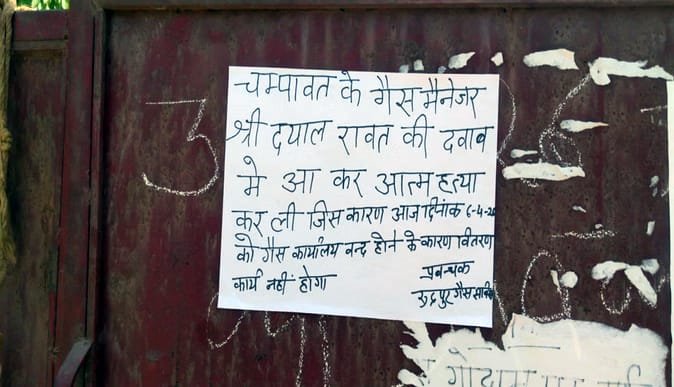 चम्पावत के गैस मैनेजर
श्री दयाल रावत की दवाव
मे आ कर आत्म हत्या
कर ली जिस कारण आज दिनांक 6-4-20
को गैस कार्यालय वन्द होने के कारण वितरण
कार्य नहीं होगा
प्रवन्धक
रुद्रपुर गैस
3
26
गोदाम